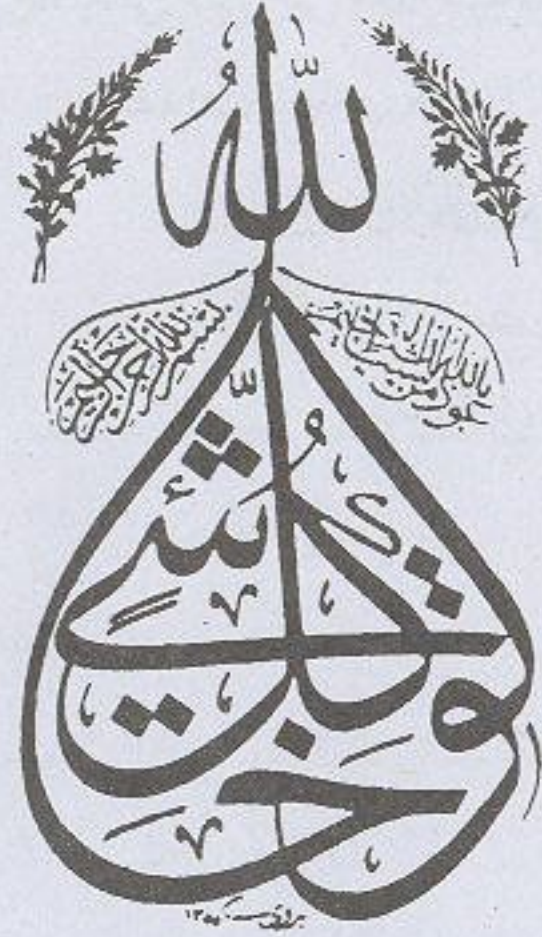 الله
أعوذ بالله من الشيطان الرجيم
بسم الله الرحمن الرحيم
خالق كل شيء